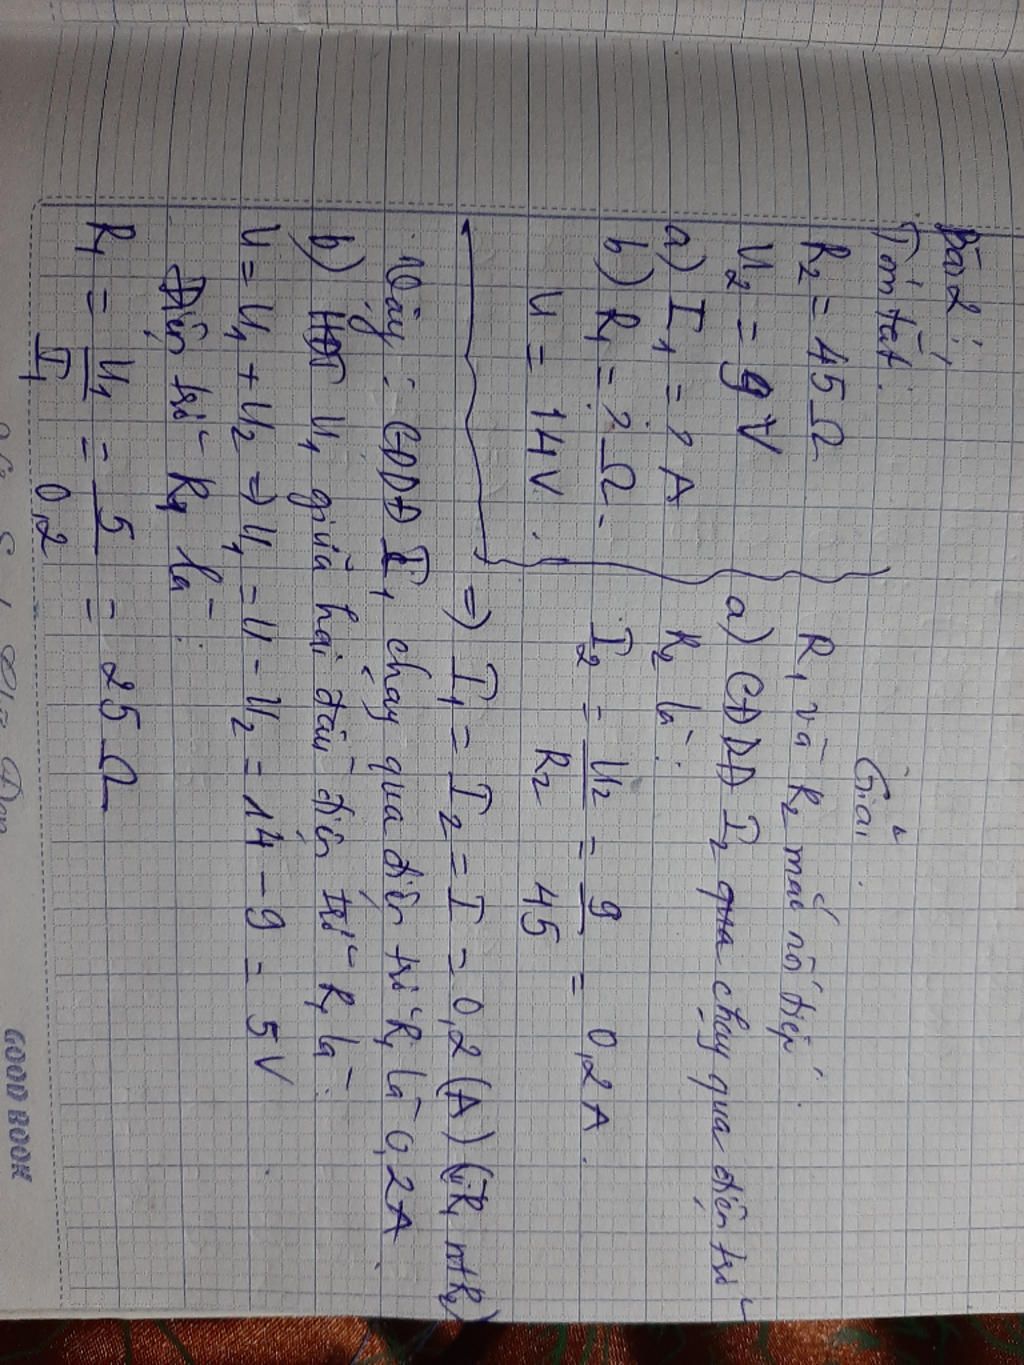 Bài 2:
Tóm tắt:
R₂ = 45 Ω
U₂ = 9 V
a) I₁ = ? A
b) R₁ = ? Ω.
U = 14V.
Giải.
R₁ và R₂ mắc nối tiếp.
a) CĐDĐ I₂ chạy qua điện trở
R₂ là:
I₂ = U₂/R₂ = 9/45 = 0,2A.
=> I₁ = I₂ = I = 0,2 (A) (vì R₁ nt R₂)
Vậy: CĐDĐ I₁ chạy qua điện trở R₁ là 0,2A.
b) HĐT U₁ giữa hai đầu điện trở R₁ là:
U = U₁ + U₂ => U₁ = U - U₂ = 14 - 9 = 5V.
Điện trở R₁ là:
R₁ = U₁/I₁ = 5/0,2 = 25 Ω
GOOD BOOK